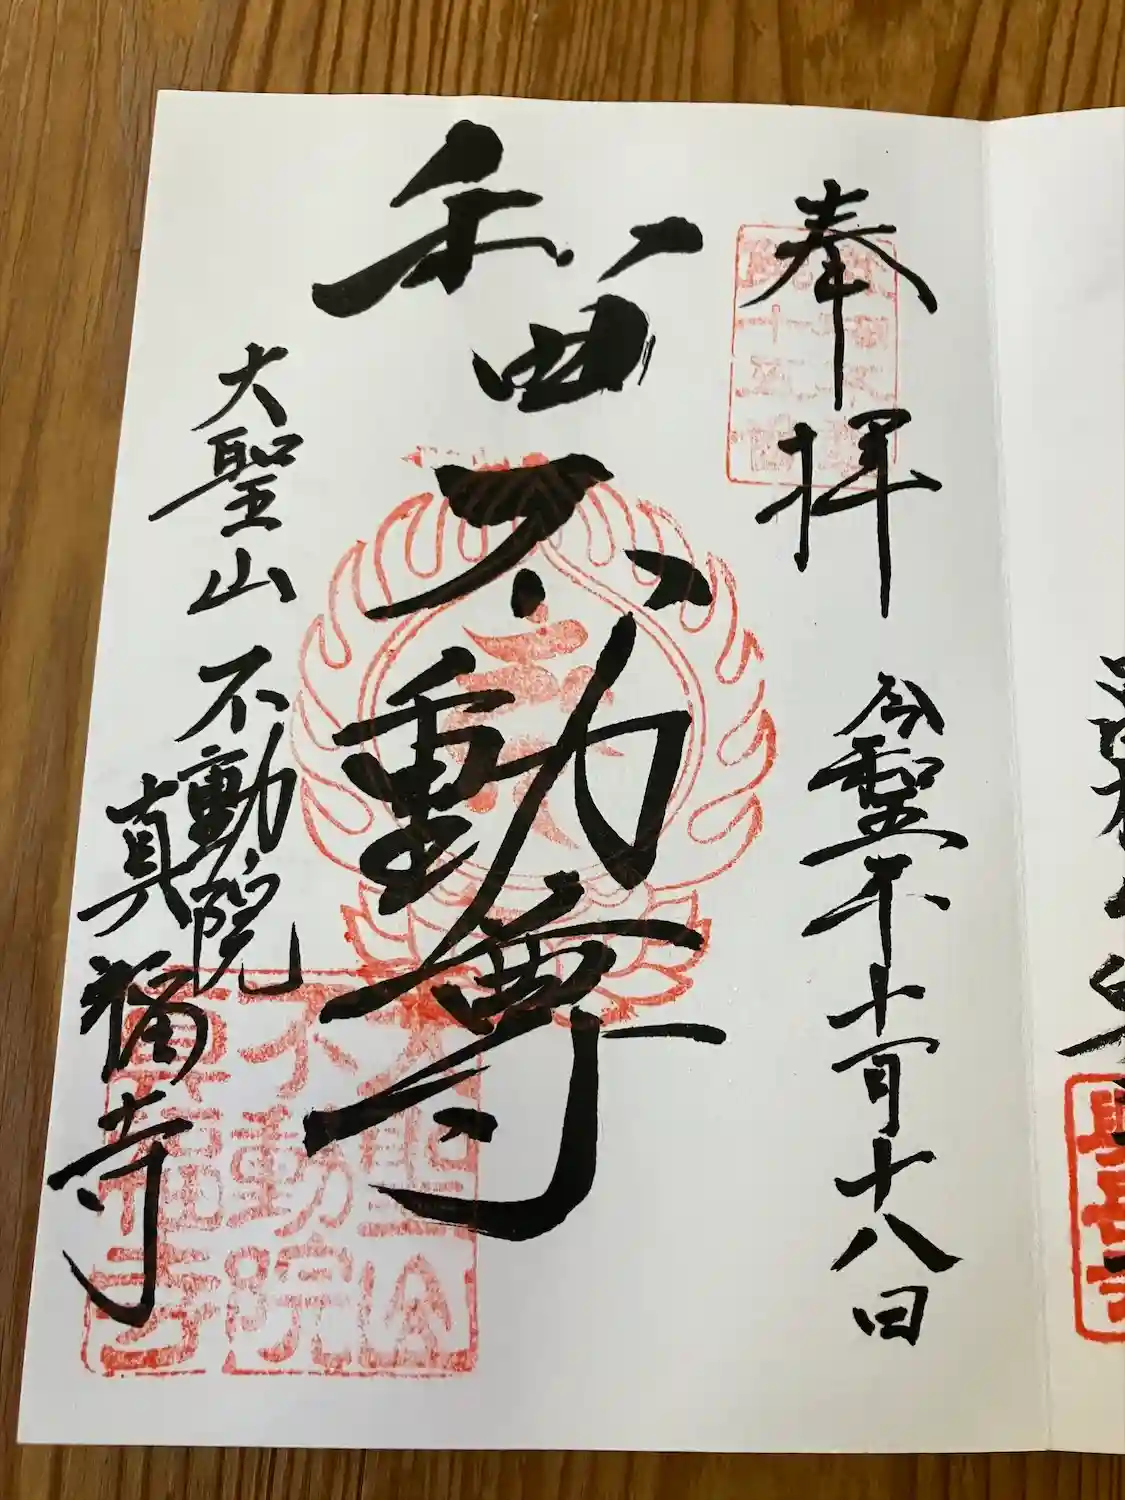 奉拝
令和五年十一月十八日
和田不動尊
大聖山 不動院
真福寺
大聖山
不動院
真福寺